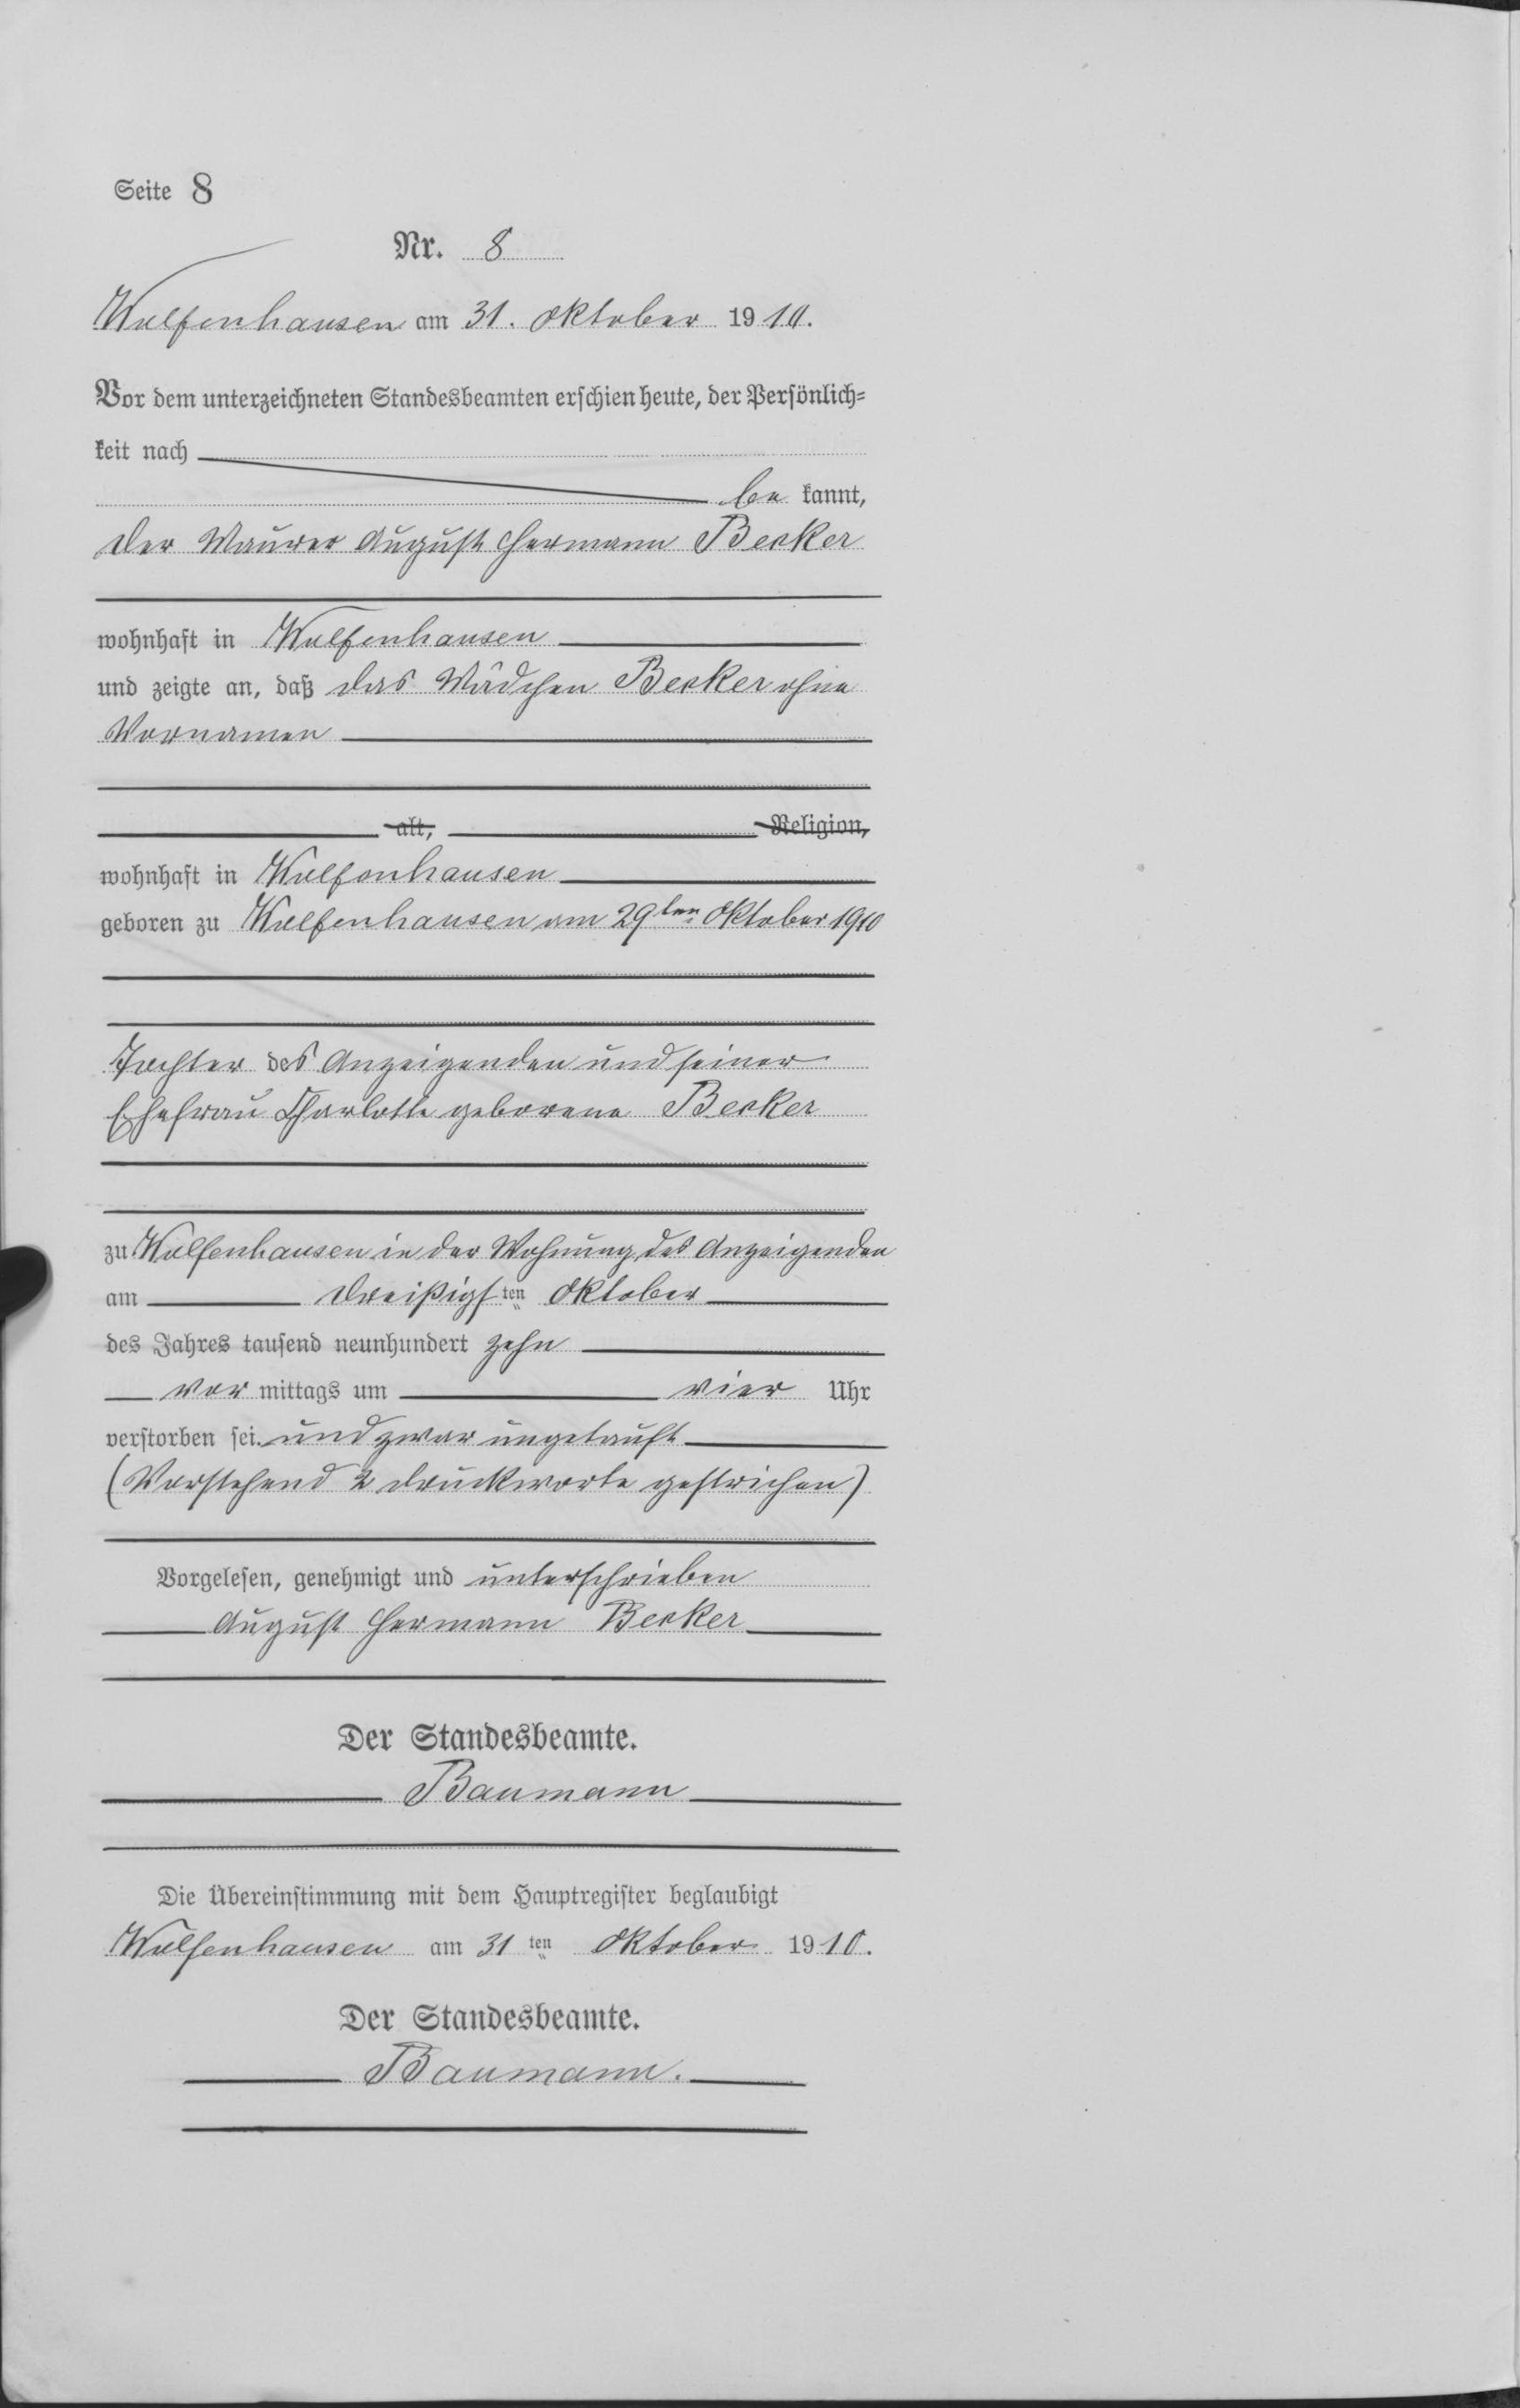 Seite 8
Nr. 8
Wulfenhausen am 31. Oktober 1910.
Vor dem unterzeichneten Standesbeamten erschien heute, der Persönlich=
keit nach
be kannt,
der Maurer August Hermann Becker
wohnhaft in Wulfenhausen
und zeigte an, daß das Mädchen Becker ohne
Vornamen
alt, Religion,
wohnhaft in Wulfenhausen
geboren zu Wulfenhausen am 29ten Oktober 1910
Tochter des Anzeigenden und seiner
Ehefrau Charlotte geborene Becker
zu Wulfenhausen in der Wohnung des Anzeigenden
am dreißigsten Oktober
des Jahres tausend neunhundert zehn
vor mittags um vier Uhr
verstorben sei. und zwar ungetauft
(Vorstehend 2 Druckworte gestrichen)
Vorgelesen, genehmigt und unterschrieben
August Hermann Becker
Der Standesbeamte.
Baumann
Die Übereinstimmung mit dem Hauptregister beglaubigt
Wulfenhausen am 31 ten Oktober 1910.
Der Standesbeamte.
Baumann.